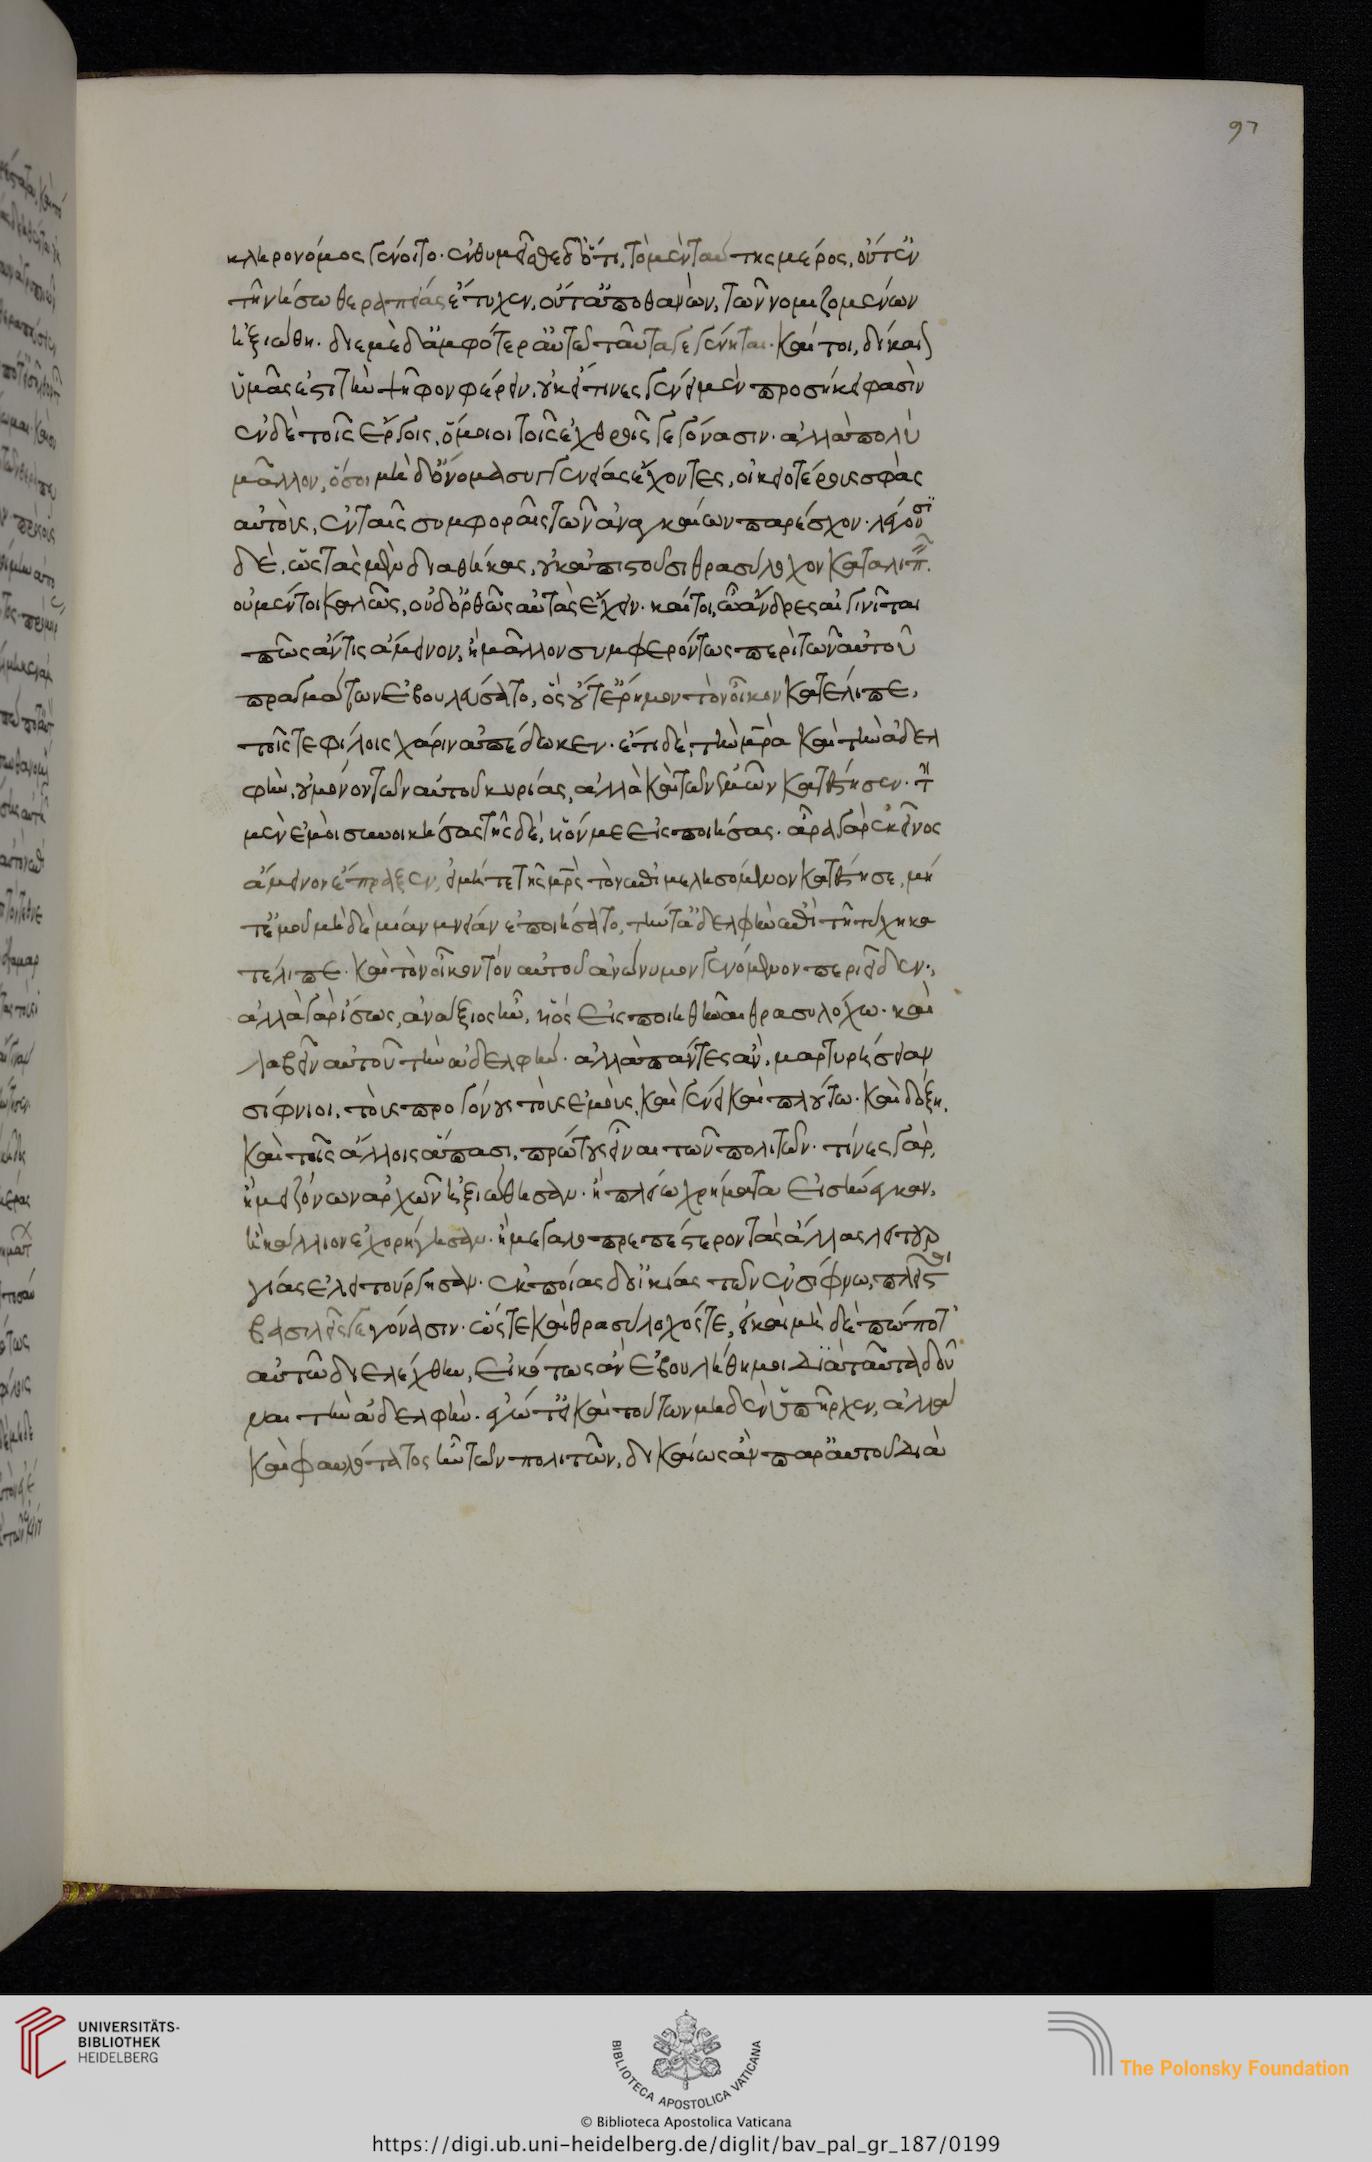 97
κληρονόμος γένοιτο. ἐνθυμεῖσθε δ' ὅτι, τὸ μὲν ταύτης μέρος, οὔτ' ἐν
τῆ νήσω θεραπείας ἔτυχεν, οὔτ' ἀποθανὼν, τῶν νομιζομένων
ἠξιώθη. δι' ἐμὲ δ' ἀμφότερ' αὐτῶ ταῦτα γεγένηται. καί τοι, δίκαι
ὑμᾶς ἐστι τὴν ψῆφον φέρειν. οὐκ εἴ τινες γένει μὲν προσήκειν φασὶν
ἐν δὲ τοῖς ἔργοις, ὅμοιοι τοῖς ἐχθροῖς γεγόνασιν. ἀλλὰ πολὺ
μᾶλλον, ὅσοι μηδ' ὄνομα συγγενείας ἔχοντες, οἰκειοτέρους σφὰς
αὐτοὺς, ἐν ταῖς συμφοραῖς τῶν ἀναγκαίων παρέσχον. λέγουσι
δὲ, ὡς τὰς μὲν διαθήκας, οὐκ ἀπιστοῦσι θρασύλοχον καταλιπ.
οὐ μέντοι καλῶς, οὐδ' ὀρθῶς αὐτὰς ἔχειν. καίτοι, ὦ ἄνδρες αἰγινῆται
πῶς ἄν τις ἄμεινον, ἢ μᾶλλον συμφερόντως περὶ τῶν αὐτοῦ
πραγμάτων ἐβουλεύσατο, ὃς οὔτ' ἔρημον τὸν οἶκον κατέλιπε,
τοῖς τε φίλοις χάριν ἀπέδωκεν. ἔτι δὲ, τὴν μρα καὶ τὴν ἀδελ
φὴν, οὐ μόνον τῶν αὐτοῦ κυρίας, ἀλλὰ καὶ τῶν ἐμῶν κατέστησεν. τὴ
μὲν ἐμοὶ συνοικήσας τῆς δὲ, υἱόν με εἰσποιήσας. ἆρα γὰρ ἐκεῖνος
ἄμεινον ἔπραξεν, εἰ μήτε τῆς μρς τὸν ἐπιμελησόμενον κατέστησε, μή
τ' ἐμοῦ μηδὲ μίαν μνείαν ἐποιήσατο, τήν τ' ἀδελφὴν ἐπὶ τῆ τύχη κα
τέλιπε. καὶ τὸν οἶκον τὸν αὐτοῦ ἀνώνυμον γενόμενον περιεῖδεν.
ἀλλὰ γὰρ ἴσως, ἀνάξιος ἦν, υἱός εἰσποιηθῆναι θρασυλόχω. καὶ
λαβεῖν αὐτοῦ τὴν ἀδελφήν. ἀλλὰ πάντες ἂν, μαρτυρήσειαν
σίφνιοι. τοὺς προγόνους τοὺς ἐμοὺς, καὶ γένει καὶ πλούτω. καὶ δόξη,
καὶ τοῖς ἄλλοις ἅπασι, πρώτους εἶναι τῶν πολιτῶν. τίνες γὰρ,
ἢ μειζόνων ἀρχῶν ἠξιώθησαν. ἢ πλείω χρήματα εἰσήνεγκαν,
ἢ κάλλιον ἐχορήγησαν. ἢ μεγαλοπρεπέστερον τὰς ἄλλας λειτουρ
γίας ἐλειτούργησαν. ἐκ ποίας δ' οἰκίας τῶν ἐν σίφνω, πλείστοι
βασιλεῖς γεγόνασιν. ὥστε καὶ θρασύλοχός τε, εἰ καὶ μὴ δὲ πώποτ'
αὐτῶ διελέχθην, εἰκότως ἂν ἐβουλήθη μοι διὰ ταῦτα δοῦ
ναι τὴν ἀδελφὴν. ἐγώ τ' εἰ καὶ τούτων μηδὲν ὑπῆρχεν, ἀλλὰ
καὶ φαυλότατος ἦν τῶν πολιτῶν, δικαίως ἂν παρ' αὐτοῦ διὰ
UNIVERSITÄTS-
BIBLIOTHEK
HEIDELBERG
BIBLIOTECA APOSTOLICA VATICANA
The Polonsky Foundation
© Biblioteca Apostolica Vaticana
https://digi.ub.uni-heidelberg.de/diglit/bav_pal_gr_187/0199